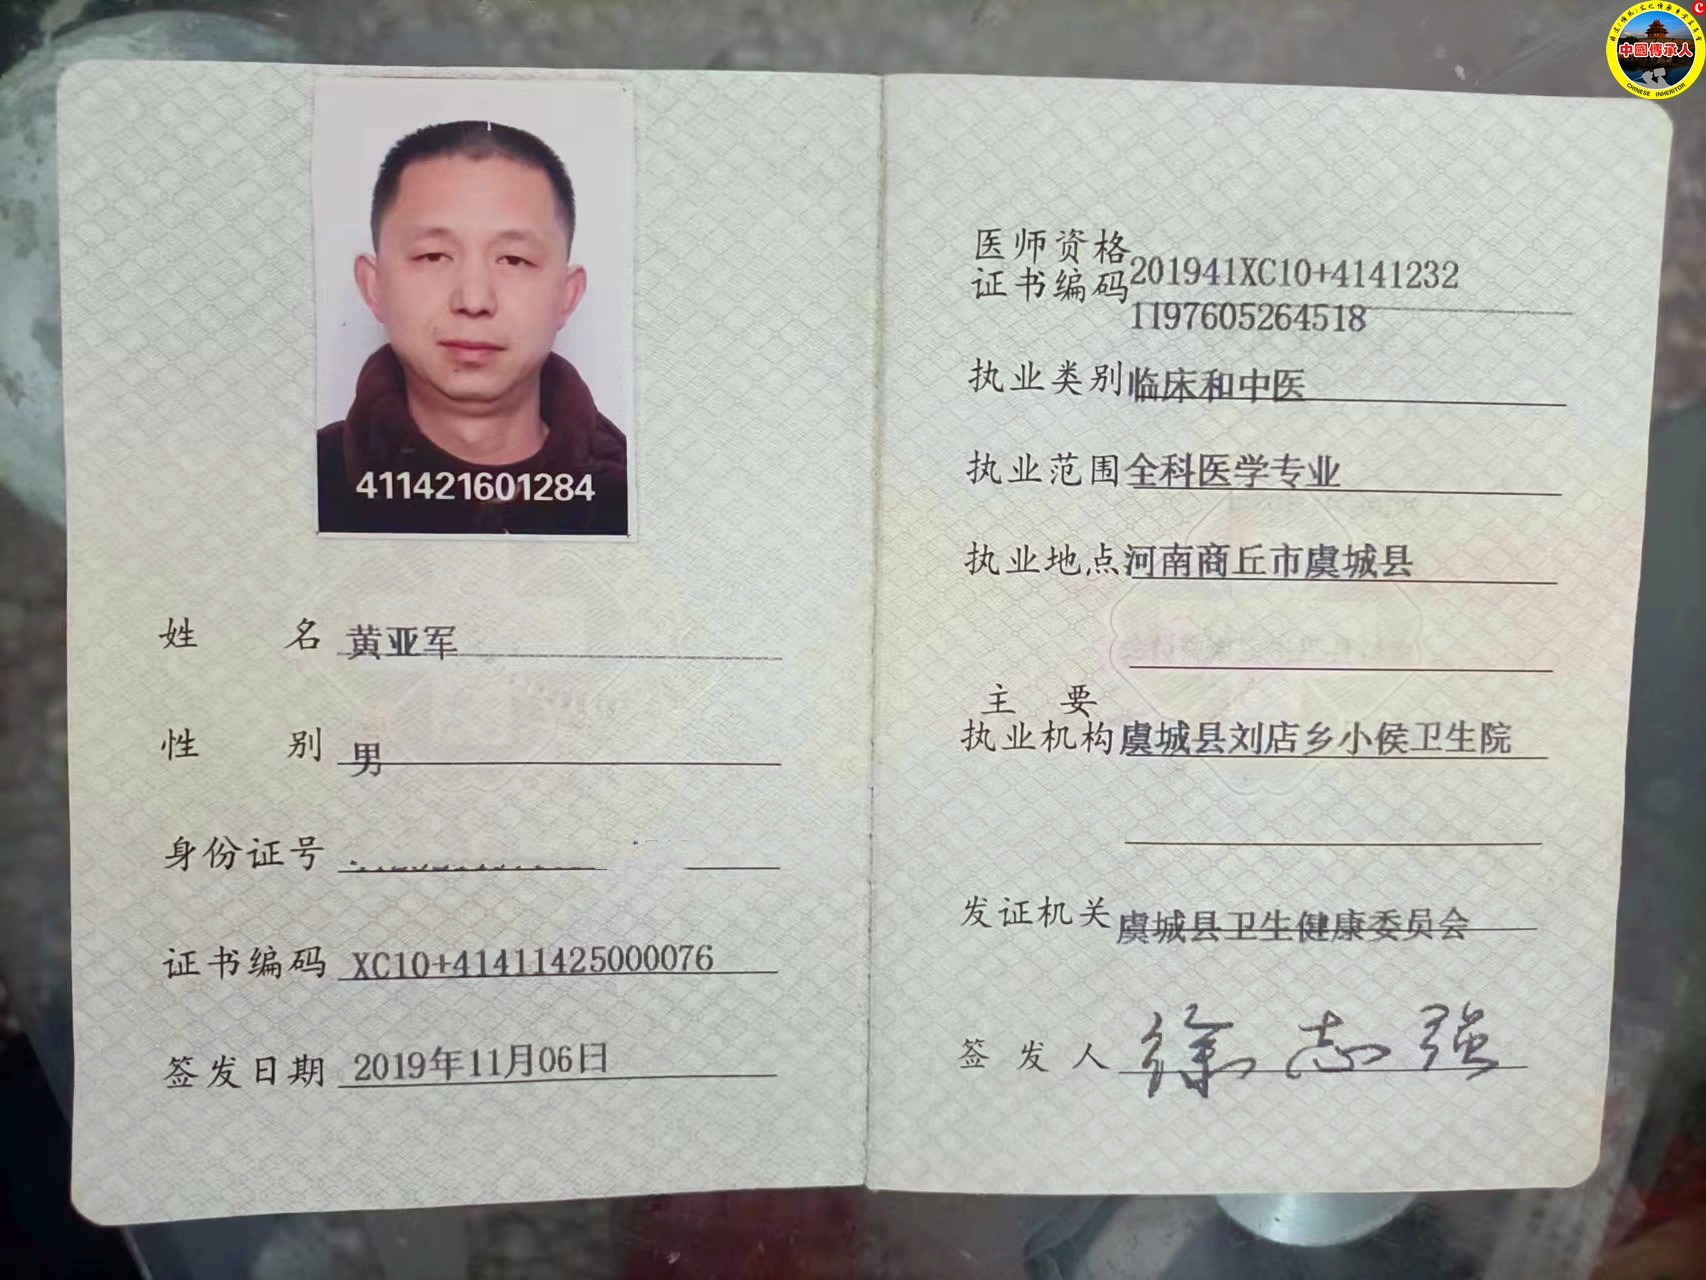 中國傳承人
CHINESE INHERITOR
411421601284
姓名 黄亚军
性别 男
身份证号
证书编码 XC10+41411425000076
签发日期 2019年11月06日
医师资格
证书编码 201941XC10+4141232
1197605264518
执业类别 临床和中医
执业范围 全科医学专业
执业地点 河南商丘市虞城县
主要
执业机构 虞城县刘店乡小侯卫生院
发证机关 虞城县卫生健康委员会
签发人 徐志强